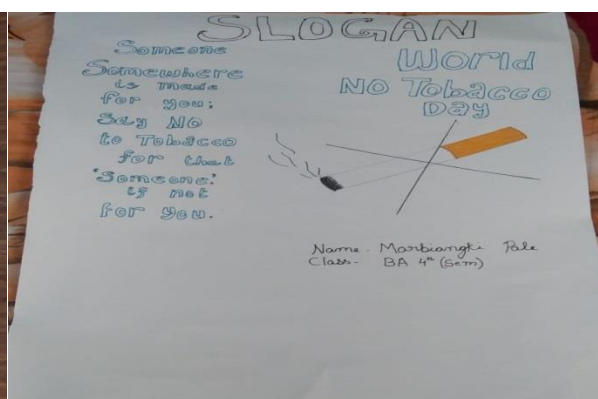 SLOGAN
Someone
Somewhere
is made
for you;
Say NO
to Tobacco
for that
'Someone'
if not
for you.
World
NO TobaccO
DAY
Name - Marbiangki Pale
Class - BA 4th (Sem)